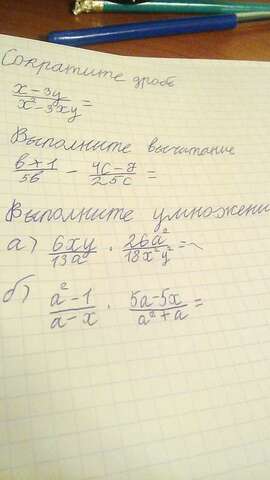 Сократите дробь
x-3y / x²-3xy =
Выполните вычитание
в+1 / 5в - 4c-7 / 25c =
Выполните умножени
а) 6xy / 13a · 26a² / 18x²y² =
б) a²-1 / a-x · 5a-5x / a²+a =